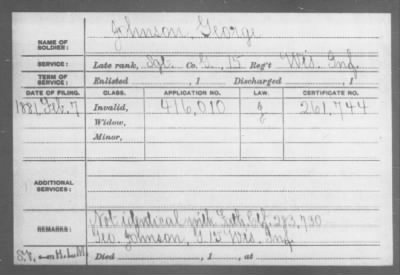 NAME OF SOLDIER: Johnson, George
SERVICE: Late rank, Sgt. Co. G, 15 Reg't Wis. Inf.
TERM OF SERVICE: Enlisted , 1 Discharged , 1
DATE OF FILING. CLASS. APPLICATION NO. LAW. CERTIFICATE NO.
1881 Feb. 7 Invalid, 416,010 261,744
Widow,
Minor,
ADDITIONAL SERVICES:
REMARKS: Not identical with Inv. Ctf. 283,730
Geo. Johnson, 15 Wis. Inf.
Died , 1 , at